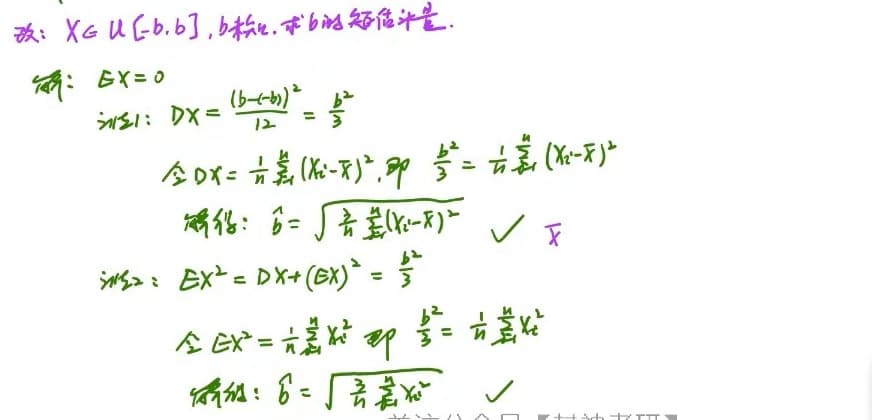 改: X∈U[-b,b], b未知, 求b的矩估计量.
解: EX=0
法1: DX = (b-(-b))²/12 = b²/3
令DX = 1/n ∑ⁿᵢ₌₁ (Xᵢ-X̄)², 即 b²/3 = 1/n ∑ⁿᵢ₌₁ (Xᵢ-X̄)²
解得: b̂ = √(3/n ∑ⁿᵢ₌₁ (Xᵢ-X̄)²) ✓ X̄
法2: EX² = DX+(EX)² = b²/3
令 EX² = 1/n ∑ⁿᵢ₌₁ Xᵢ² 即 b²/3 = 1/n ∑ⁿᵢ₌₁ Xᵢ²
解得: b̂ = √(3/n ∑ⁿᵢ₌₁ Xᵢ²) ✓